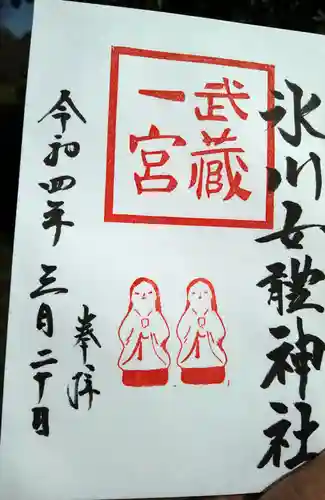 氷川女體神社
武蔵
一宮
奉拝
令和四年
三月二十日